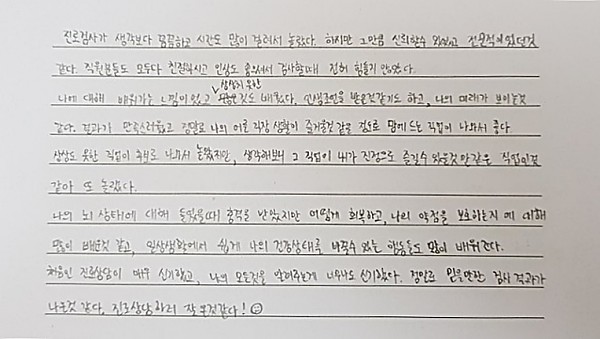 진로검사가 생각보다 꼼꼼하고 시간도 많이 걸려서 놀랐다. 하지만 그만큼 신뢰할수 있었고 전문적이었던것
같다. 직원분들도 모두다 친절하시고 인상도 좋으셔서 검사할때 전혀 힘들지 않았다.
상상치 못한
나에 대해 배워가는 느낌이 있고 많은것도 배웠다. 인생조언을 받은것같기도 하고, 나의 미래가 보이는것
같다. 결과가 만족스러웠고 정말로 나의 어른 직장 생활이 즐거울것 같을 정도로 맘에 드는 직업이 나와서 좋다.
상상도 못한 직업이 추천로 나와서 놀랐지만, 생각해보니 그 직업이 내가 진정으로 즐길수 있을것만 같은 직업인것
같아 또 놀랐다.
나의 뇌 상태에 대해 들었을때 충격을 받았지만 어떻게 회복하고, 나의 약점을 보호하는지 에 대해
많이 배운것 같고, 일상생활에서 쉽게 나의 건강상태를 바꿀수 있는 행동들도 많이 배워간다.
처음인 진로상담이 매우 신기하고, 나의 모든것을 알려주는게 너무나도 신기했다. 정말로 믿을만한 검사 결과가
나온것 같다. 진로상담하러 잘 온것같다! ☺